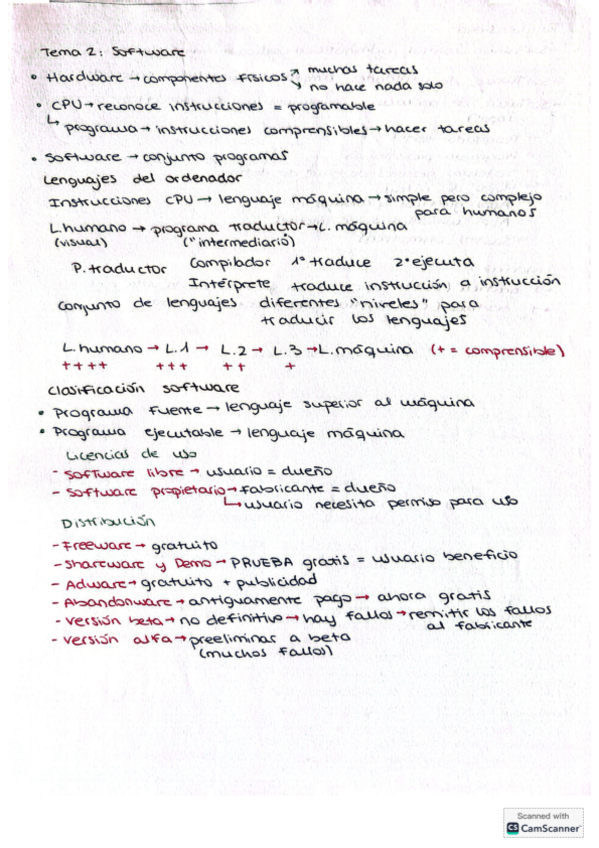 Tema 2: Software
• Hardware → componentes físicos ↗ muchas tareas
↘ no hace nada solo
• CPU → reconoce instrucciones = programable
↳ programa → instrucciones comprensibles → hacer tareas
• Software → conjunto programas
Lenguajes del ordenador
Instrucciones CPU → lenguaje máquina → simple pero complejo
para humanos
L.humano → programa traductor → L. máquina
(visual) ("intermediario)
P. traductor Compilador 1º traduce 2º ejecuta
Intérprete traduce instrucción a instrucción
Conjunto de lenguajes diferentes "niveles" para
traducir los lenguajes
L.humano → L.1 → L.2 → L.3 → L.máquina (+ = comprensible)
++++ +++ ++ +
Clasificación software
• Programa fuente → lenguaje superior al máquina
• Programa ejecutable → lenguaje máquina
Licencias de uso
- Software libre → usuario = dueño
- Software propietario → fabricante = dueño
↳ usuario necesita permiso para uso
Distribución
- Freeware → gratuito
- Shareware y Demo → PRUEBA gratis = usuario beneficio
- Adware → gratuito + publicidad
- Abandonware → antiguamente pago → ahora gratis
- Versión beta → no definitivo → hay fallos → remitir los fallos
al fabricante
- Versión alfa → preeliminar a beta
(muchos fallos)
Scanned with
CS CamScanner